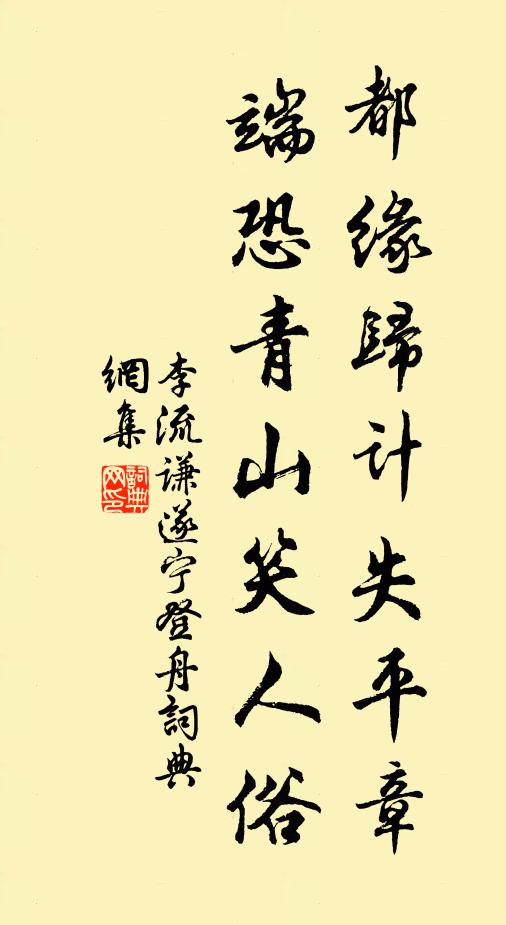 都缘歸计失平章
端恐青山笑人俗
李流谦遂宁登舟詞典
網集
詞典
网印